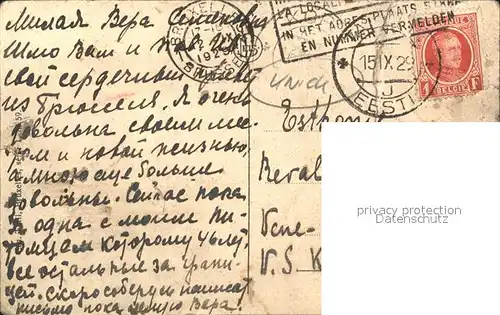 Милая Вера Степ
Шлю Вам и
свой сердечный
из Брюсселя. Я очень
довольна своим ме-
том и новой жизнью,
а мною еще больше
довольны. Сейчас пока
я одна с моим пи-
томцем которому 4 лет,
все остальные за грани-
цей. Скоро соберусь написать
письмо пока целую Вера.
BRUXELLES
1929
BRUSSEL
LOCALI
IN HET ADRES PLAATS STRAAT
EN NUMMER VERMELDEN
15 IX 29
J
EESTI
1F BELGIE 1F
Estonie
Reval
Vene-
V. S. K
privacy protection
Datenschutz